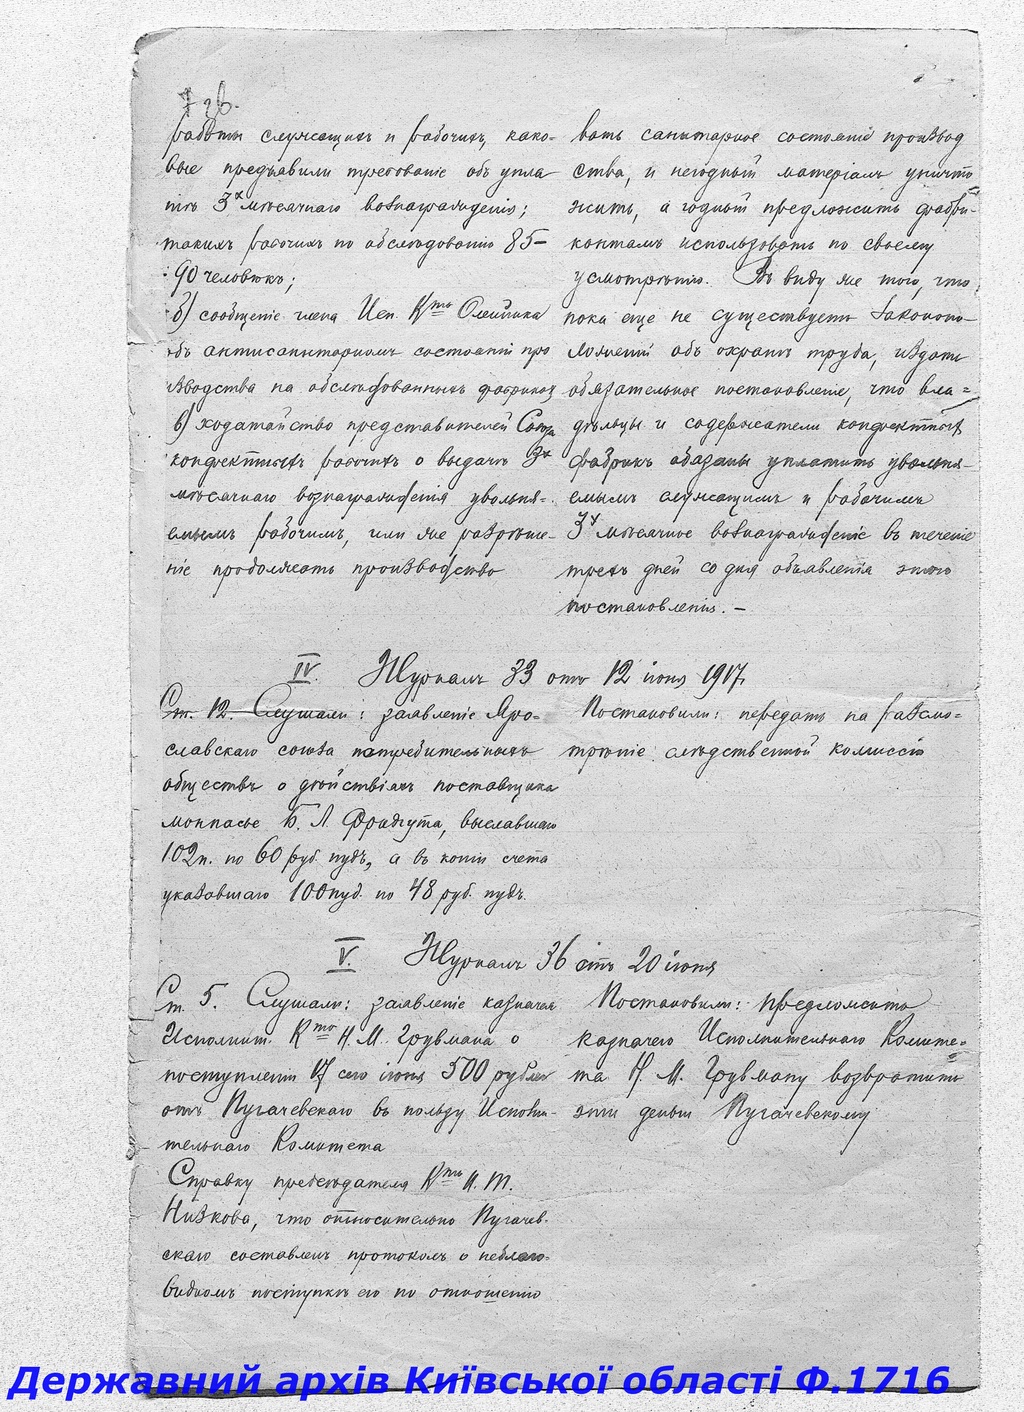 7 зв.
работы служащихъ и рабочихъ, како-
вые предъявили требованіе объ упла
тѣ 3х мѣсячнаго вознагражденія;
такихъ рабочихъ по обслѣдованію 85–
90 человѣкъ;
б) сообщеніе члена Исп. Кта Олейника
объ антисанитарномъ состояніи про
изводства на обслѣдованныхъ фабрикахъ
в) ходатайство представителей Союза
конфектныхъ рабочихъ о выдачѣ 3х
мѣсячнаго вознагражденія увольня-
емымъ рабочимъ, или же разрѣше-
ніе продолжать производство
вать санитарное состояніе производ
ства, и негодный матеріалъ уничто
жить, а годный предложить фабри-
кантамъ использовать по своему
усмотрѣнію. Въ виду же того, что
пока еще не существуетъ законопо-
ложеній объ охранѣ труда, издать
обязательное постановленіе, что вла-
дѣльцы и содержатели конфектныхъ
фабрикъ обязаны уплатить увольня-
емымъ служащимъ и рабочимъ
3х мѣсячное вознагражденіе въ теченіе
трехъ дней со дня объявленія этого
постановленія. –
IV. Журналъ 33 отъ 12 іюня 1917
Ст. 12. Слушали: заявленіе Яро-
славскаго союза потребительныхъ
обществъ о дѣйствіяхъ поставщика
монпасье Б. Л. Фридгута, выславшаго
102 п. по 60 руб. пудъ, а въ копіи счета
указавшаго 100 пуд. по 48 руб. пудъ.
Постановили: передать на разсмо-
трѣніе слѣдственной комиссіи
V. Журналъ 36 отъ 20 іюня
Ст. 5. Слушали: заявленіе казначея
Исполнит. Кта Н. М. Грубмана о
поступленіи 17 сего іюня 500 рублей
отъ Пугачевскаго въ пользу Исполни-
тельнаго Комитета
Справку предсѣдателя Кта Н. Т.
Низкова, что относительно Пугачев-
скаго составленъ протоколъ о неблаго-
видномъ поступкѣ его по отношенію
Постановили: предложить
казначею Исполнительнаго Комите-
та Н. М. Грубману возвратить
эти деньги Пугачевскому
Державний архів Київської області Ф.1716